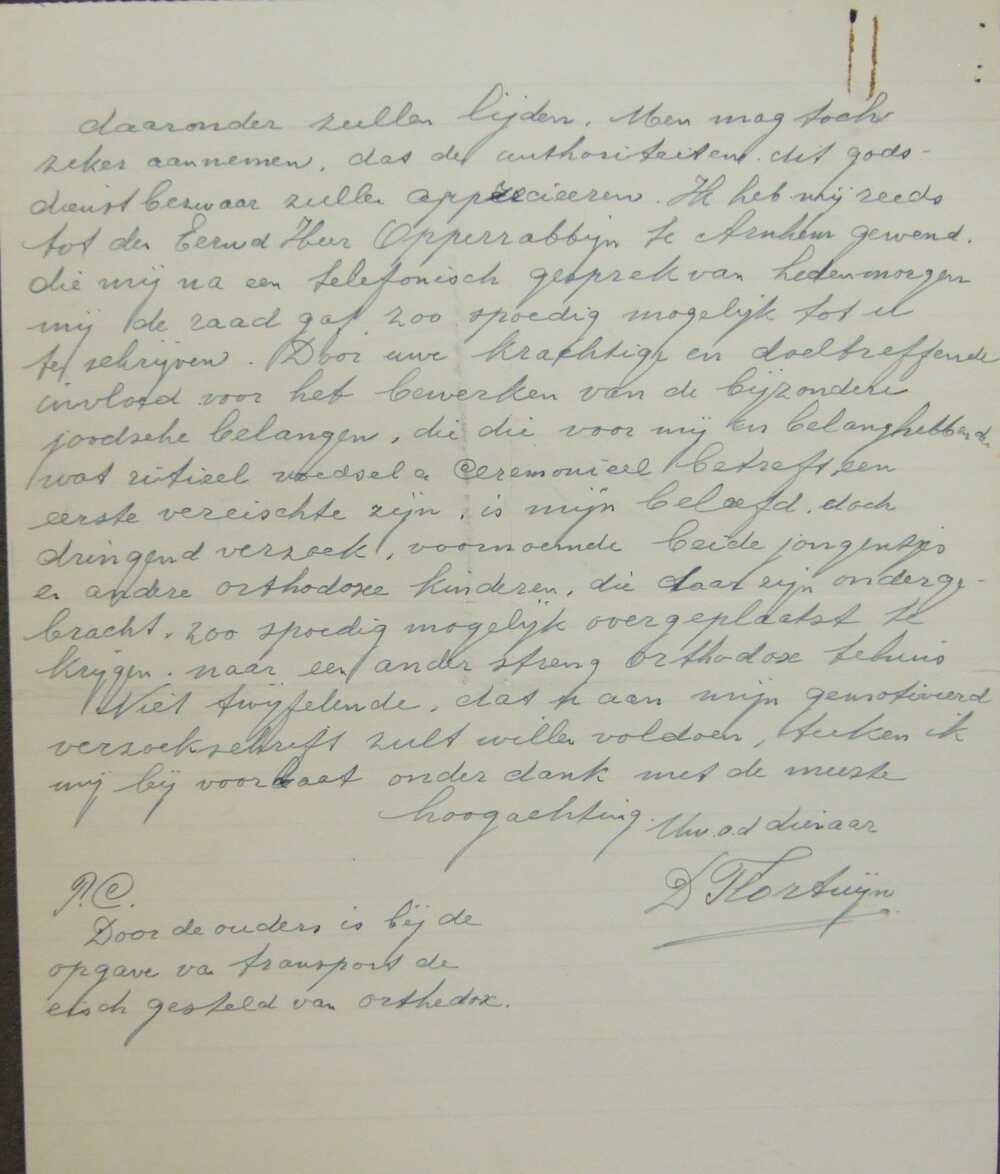 daaronder zullen lijden. Men mag toch
zeker aannemen, das de authoriteiten dit gods-
dienstbezwaar zullen apprecieeren. Ik heb mij reeds
tot den Eerwd Heer Opperrabbijn te Arnhem gewend.
die mij na een telefonisch gesprek van hedenmorgen
mij de raad gaf zoo spoedig mogelijk tot u
te schrijven. Door uwe krachtige en doeltreffende
invloed voor het bewerken van de bijzondere
joodsche belangen, die die voor mij en belanghebbenden
wat ritieel voedsel en ceremonieel betreft, een
eerste vereischte zijn, is mijn beleefd, doch
dringend verzoek, voornoemde beide jongentjes
en andere orthodoxe kinderen, die daar zijn onderge-
bracht, zoo spoedig mogelijk overgeplaatst te
krijgen. naar een ander streng orthodox tehuis
Niet twijfelende, dat u aan mijn gemotiveerd
verzoekschrift zult willen voldoen, teeken ik
mij bij voorbaat onder dank met de meeste
hoogachting. Uw.o.d dienaar
D Fortuijn
P.C.
Door de ouders is bij de
opgave van transport de
eisch gesteld van orthedox.